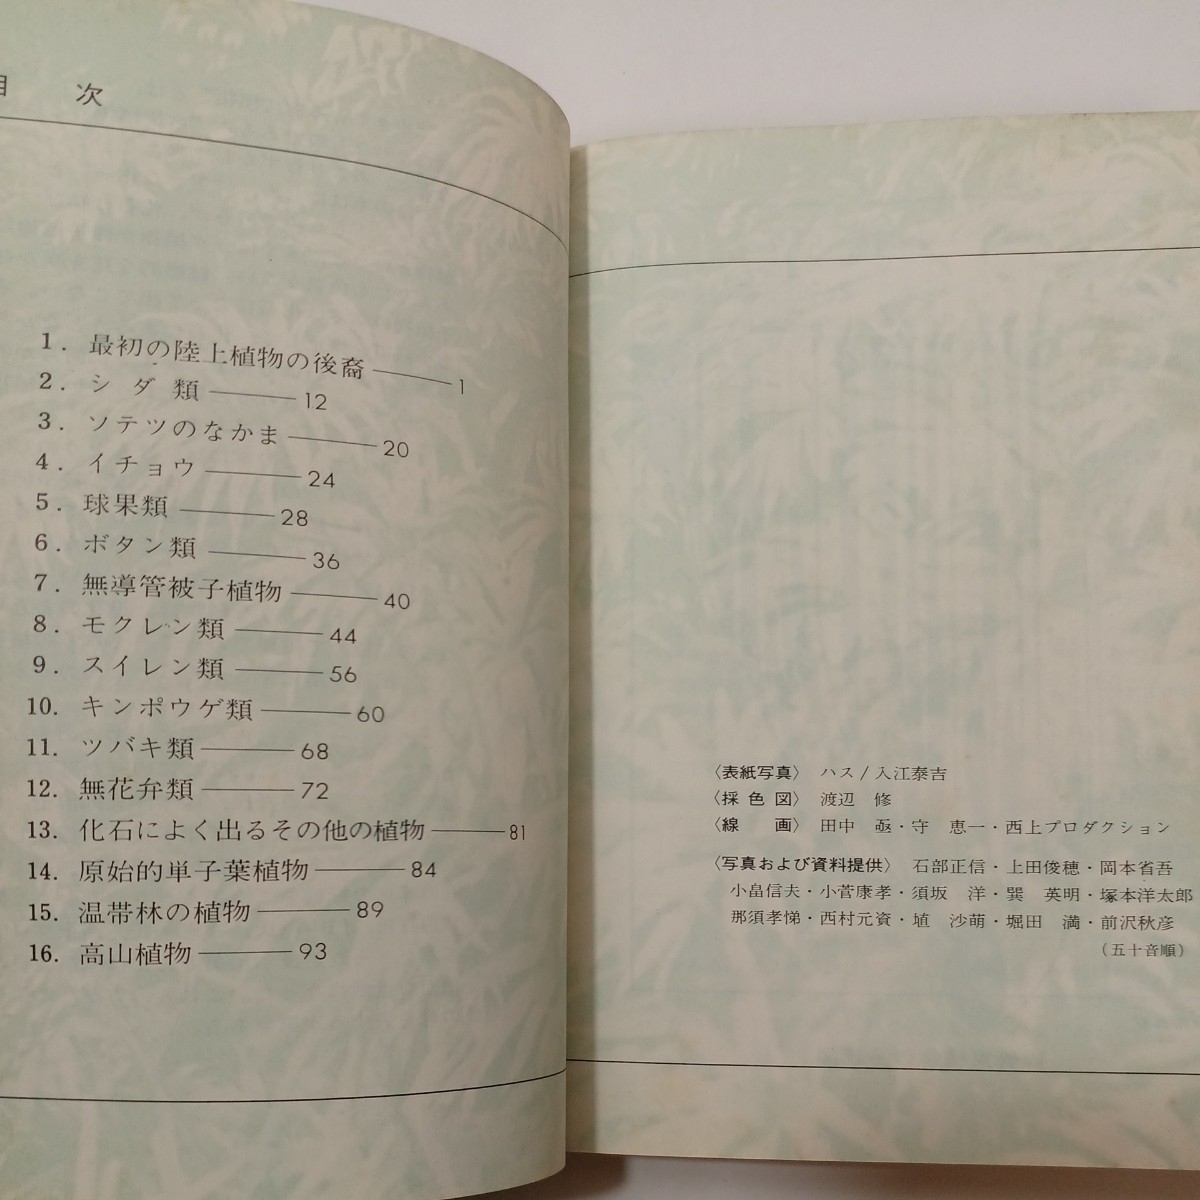 目 次
1. 最初の陸上植物の後裔 1
2. シダ類 12
3. ソテツのなかま 20
4. イチョウ 24
5. 球果類 28
6. ボタン類 36
7. 無導管被子植物 40
8. モクレン類 44
9. スイレン類 56
10. キンポウゲ類 60
11. ツバキ類 68
12. 無花弁類 72
13. 化石によく出るその他の植物 81
14. 原始的単子葉植物 84
15. 温帯林の植物 89
16. 高山植物 93
〈表紙写真〉 ハス/入江泰吉
〈採色図〉 渡辺 修
〈線 画〉 田中 亟・守 恵一・西上プロダクション
〈写真および資料提供〉 石部正信・上田俊穂・岡本省吾
小畠信夫・小菅康孝・須坂 洋・巽 英明・塚本洋太郎
那須孝悌・西村元資・埴 沙萌・堀田 満・前沢秋彦
(五十音順)